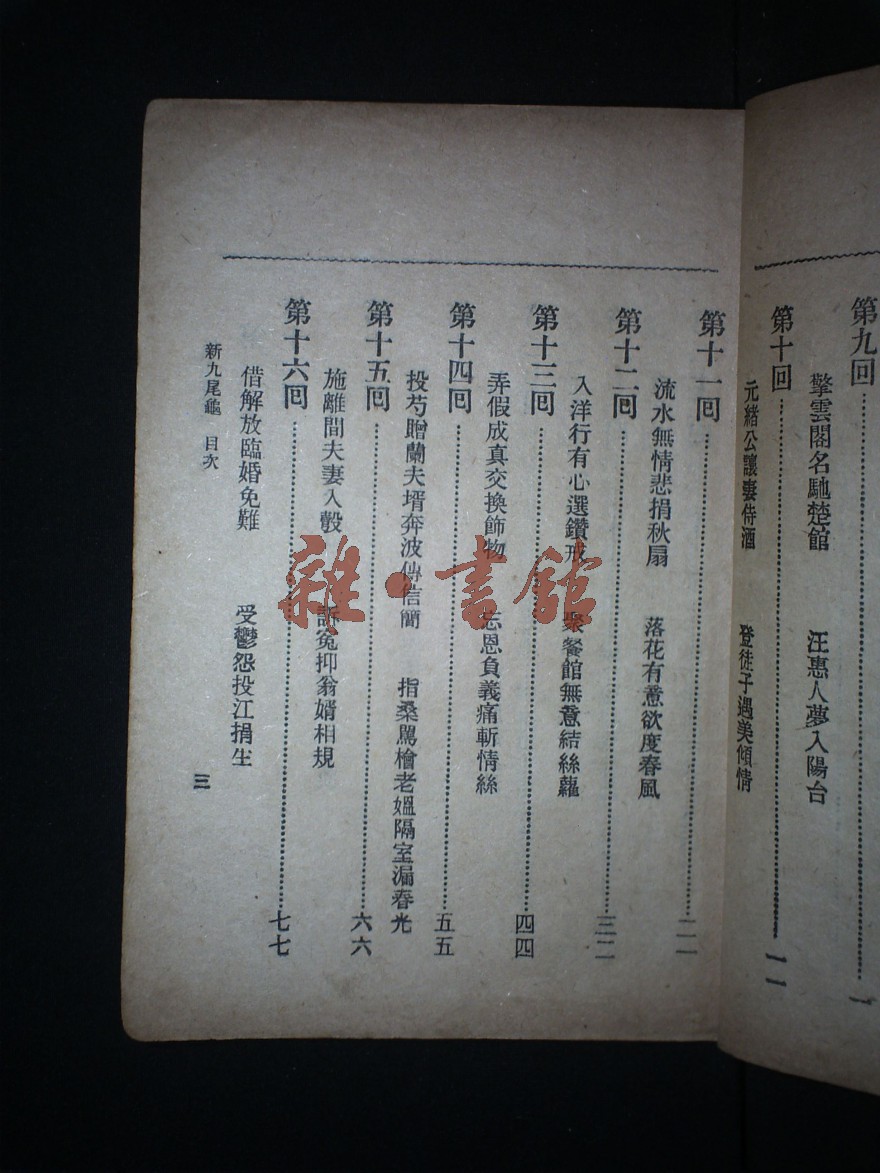 第九回……一
擎雲閣名馳楚館 汪惠人夢入陽台
第十回……一一
元緒公讓妻侍酒 登徒子遇美傾情
第十一回……二一
流水無情悲捐秋扇 落花有意欲度春風
第十二回……三二
入洋行有心選鑽戒 聚餐館無意結絲蘿
第十三回……四四
弄假成真交換飾物 忘恩負義痛斬情絲
第十四回……五五
投芍贈蘭夫壻奔波傳信簡 指桑罵檜老媼隔室漏春光
第十五回……六六
施離間夫妻入彀 訴寃抑翁婿相規
第十六回……七七
借解放臨婚免難 受鬱怨投江捐生
新九尾龜 目次
三
雜·書館